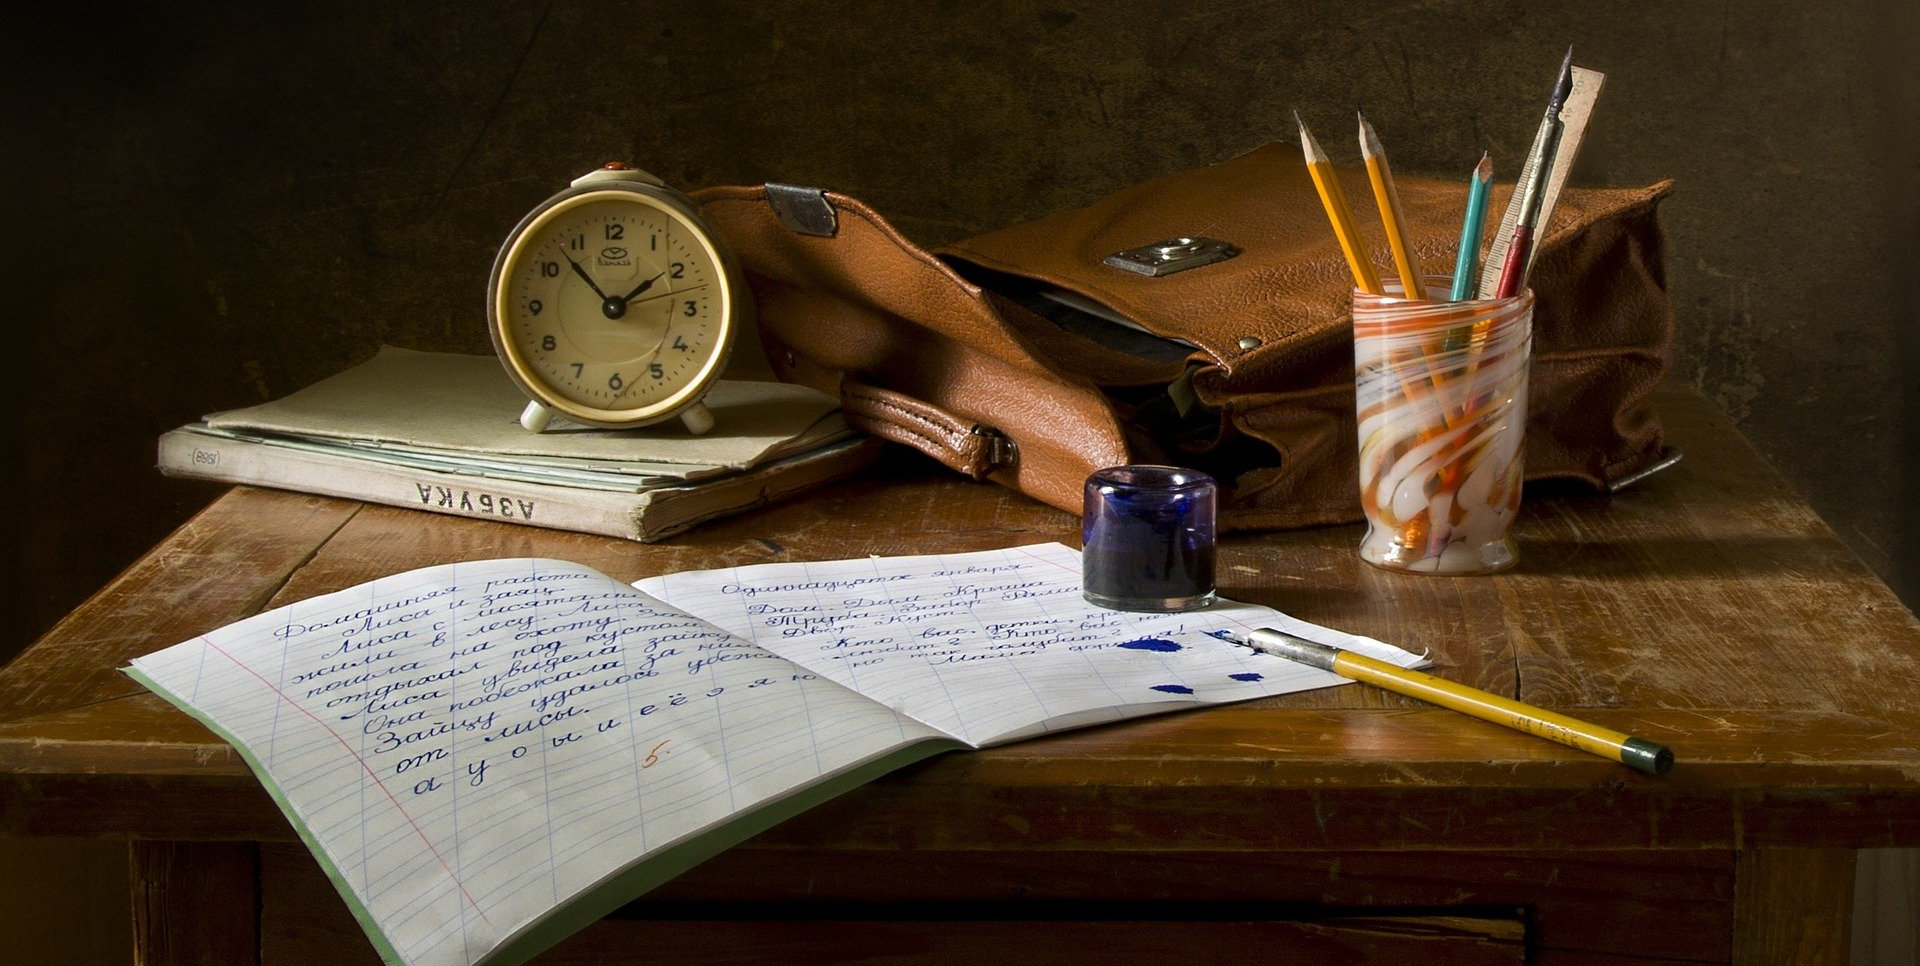 12
1
2
3
4
5
6
7
8
9
10
11
(1959)
АЗБУКА
Домашняя работа
Лиса и заяц.
Лиса с лисятами
жили в лесу. Лиса
пошла на охоту. За
отдыхал под кустом
Лиса увидела зайку
Она побежала за ним
Зайцу удалось убежа
от лисы.
а у о ы и е ё э я ю
5
Одиннадцатое января
Дом. Дым. Крыша.
Труба. Забор. Рама
Двор. Куст.
Кто вас, детки,
любит? Кто вас
но так голубит?
Мама